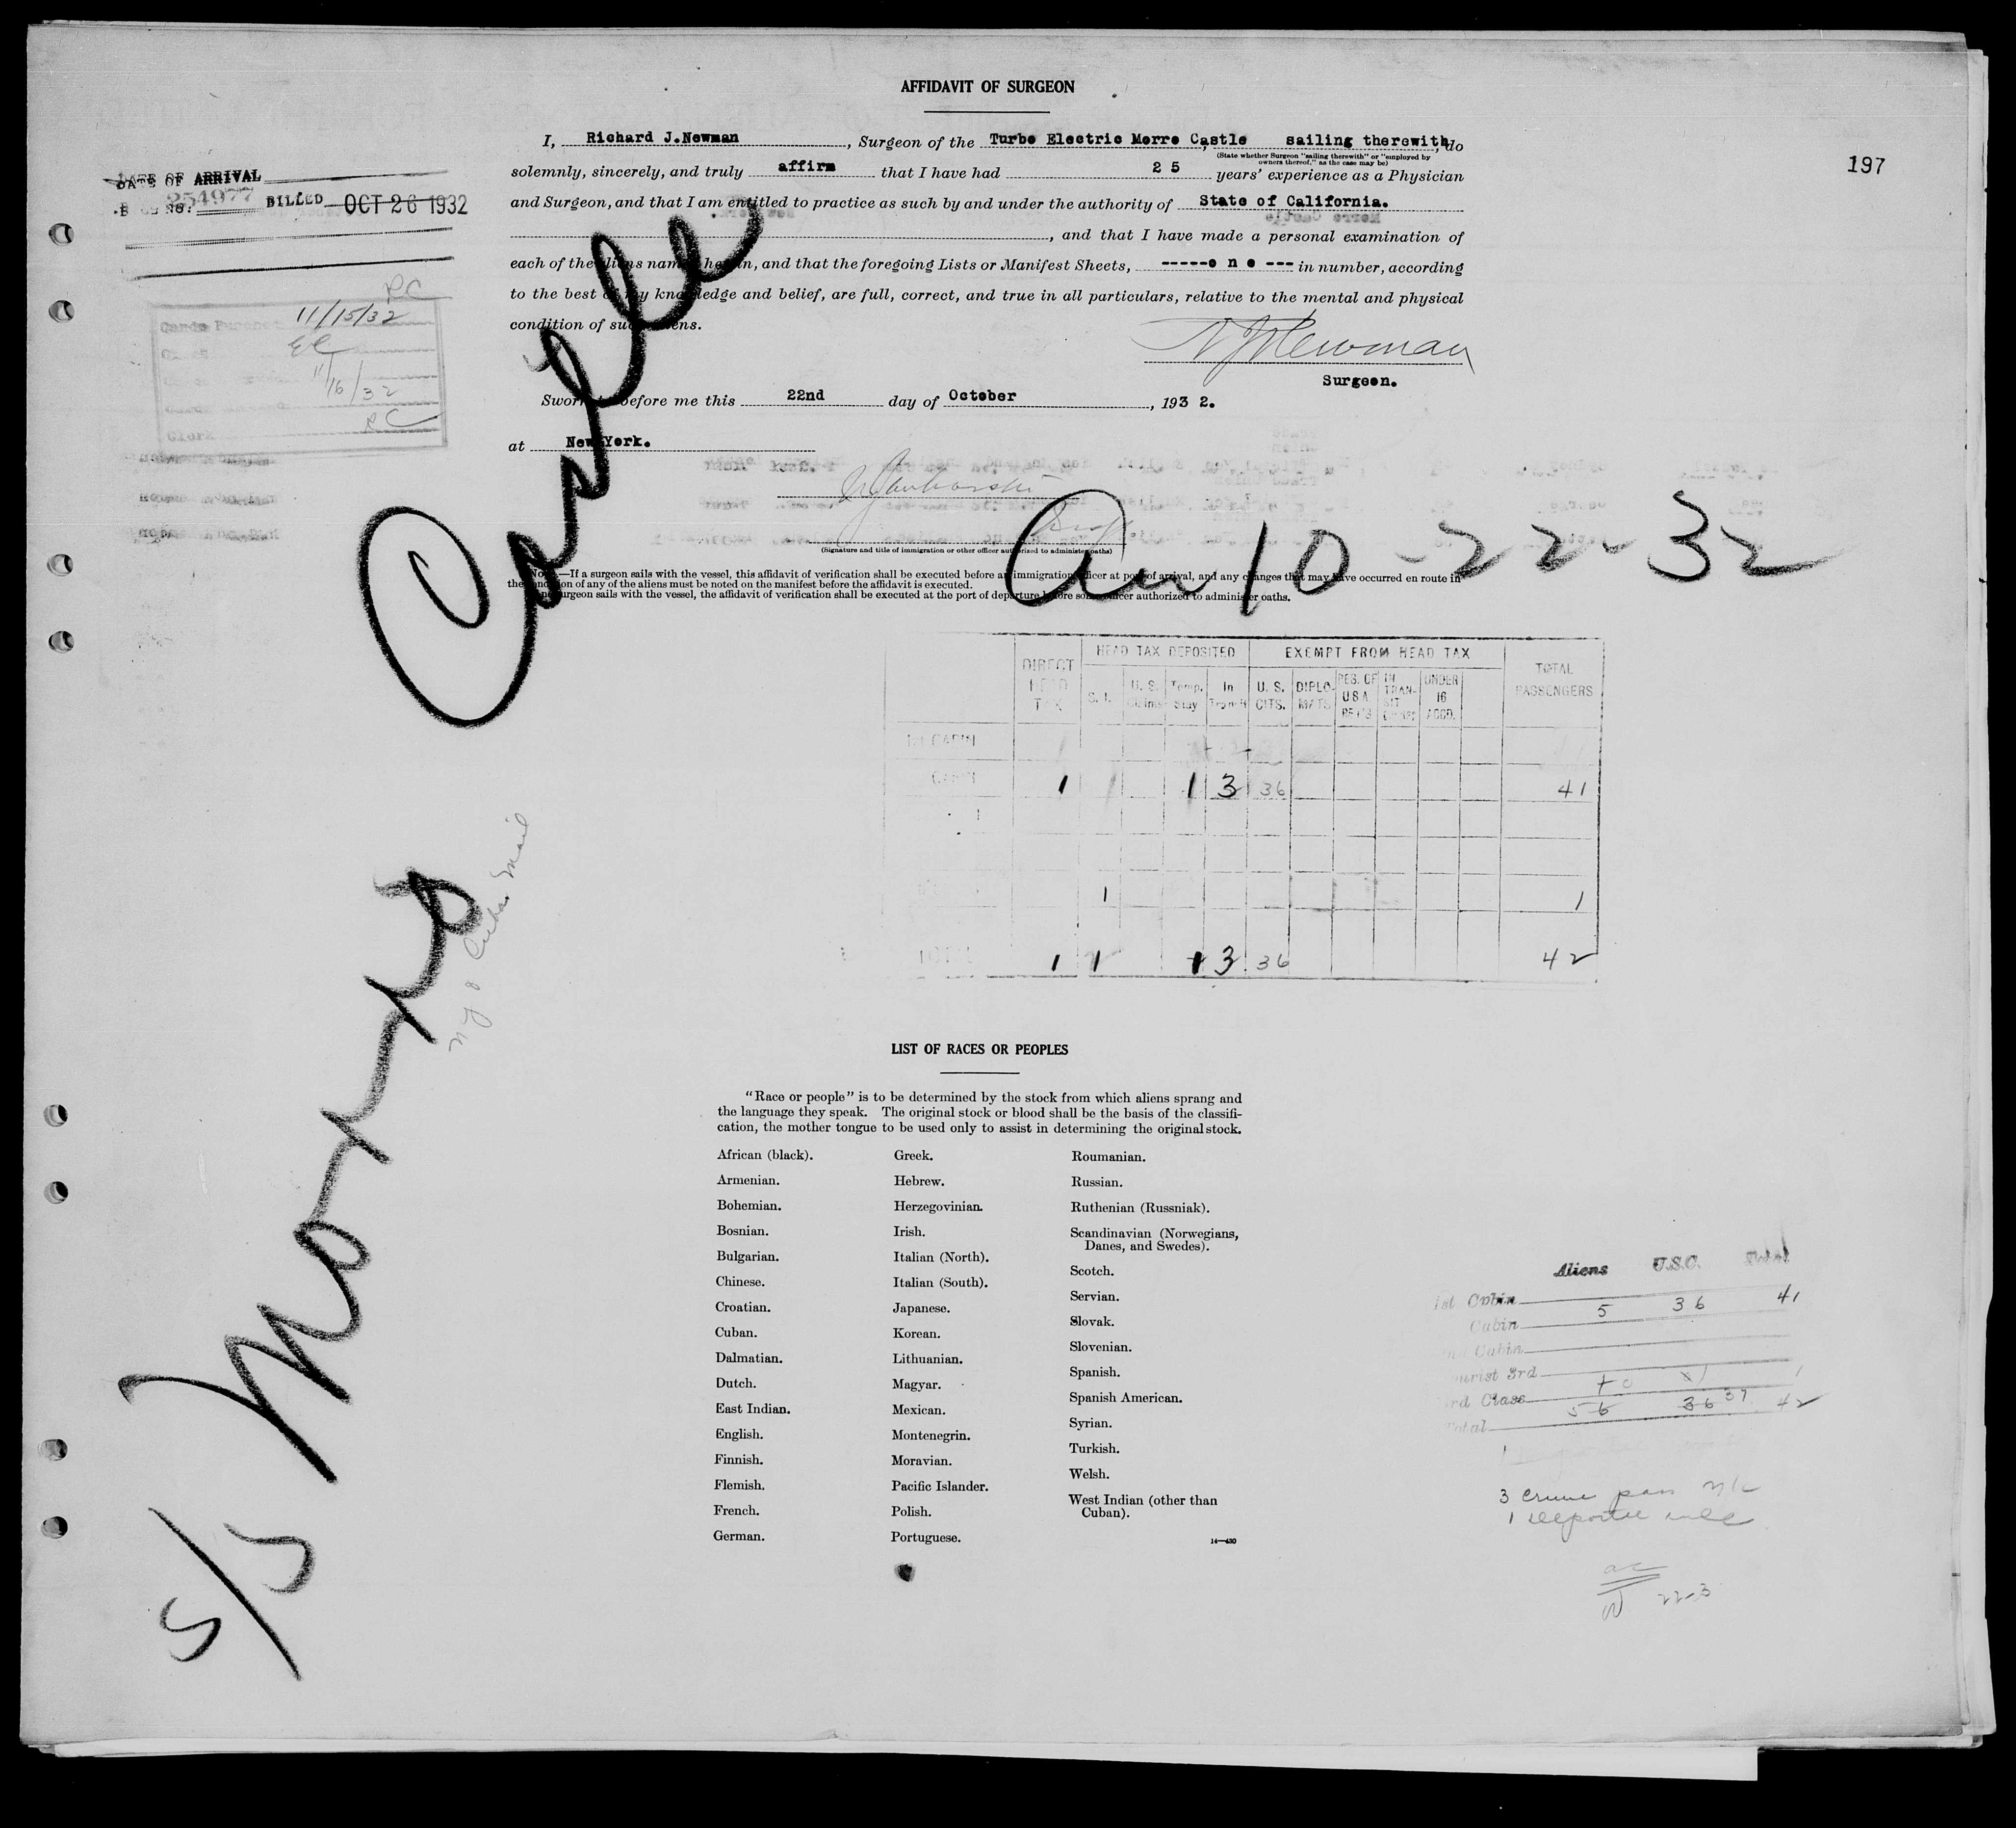 AFFIDAVIT OF SURGEON
197
I, Richard J.Newman, Surgeon of the Turbo Electric Morro Castle sailing therewith, do
(State whether Surgeon "sailing therewith" or "employed by owners thereof," as the case may be)
solemnly, sincerely, and truly affirm that I have had 2 5 years' experience as a Physician
and Surgeon, and that I am entitled to practice as such by and under the authority of State of California.
, and that I have made a personal examination of
each of the aliens named herein, and that the foregoing Lists or Manifest Sheets, -----o n e --- in number, according
to the best of my knowledge and belief, are full, correct, and true in all particulars, relative to the mental and physical
condition of such aliens.
R J Newman
Surgeon.
Sworn to before me this 22nd day of October, 193 2.
at New York.
(Signature and title of immigration or other officer authorized to administer oaths)
NOTE.—If a surgeon sails with the vessel, this affidavit of verification shall be executed before an immigration officer at port of arrival, and any changes that may have occurred en route in
the condition of any of the aliens must be noted on the manifest before the affidavit is executed.
If no surgeon sails with the vessel, the affidavit of verification shall be executed at the port of departure before some officer authorized to administer oaths.
DATE OF ARRIVAL
254977 BILLED OCT 26 1932
RC
11/15/32
11/16/32
RC
Clerk
S/S Morro Castle
NY & Cuba Mail
Arr 10-22-32
DIRECT HEAD TAX
HEAD TAX DEPOSITED
EXEMPT FROM HEAD TAX
TOTAL PASSENGERS
S. I.
U. S. Claims
Temp. Stay
In Transit
U. S. CITS.
DIPLO-MATS
RES. OF U.S.A. RET'G
IN TRAN-SIT
UNDER 16 ACCD.
1st CABIN
CABIN 1 1 3 36 41
1 1
TOTAL 1 1 1 3 36 42
LIST OF RACES OR PEOPLES
"Race or people" is to be determined by the stock from which aliens sprang and
the language they speak. The original stock or blood shall be the basis of the classifi-
cation, the mother tongue to be used only to assist in determining the original stock.
African (black).
Armenian.
Bohemian.
Bosnian.
Bulgarian.
Chinese.
Croatian.
Cuban.
Dalmatian.
Dutch.
East Indian.
English.
Finnish.
Flemish.
French.
German.
Greek.
Hebrew.
Herzegovinian.
Irish.
Italian (North).
Italian (South).
Japanese.
Korean.
Lithuanian.
Magyar.
Mexican.
Montenegrin.
Moravian.
Pacific Islander.
Polish.
Portuguese.
Roumanian.
Russian.
Ruthenian (Russniak).
Scandinavian (Norwegians,
Danes, and Swedes).
Scotch.
Servian.
Slovak.
Slovenian.
Spanish.
Spanish American.
Syrian.
Turkish.
Welsh.
West Indian (other than
Cuban).
14—430
Aliens U.S.C. Total
1st Cabin 5 36 41
Cabin
2nd Cabin
Tourist 3rd
3rd Class 1 0 1 1
Total 5 6 36 37 42
3 cruise pass
1 deportee